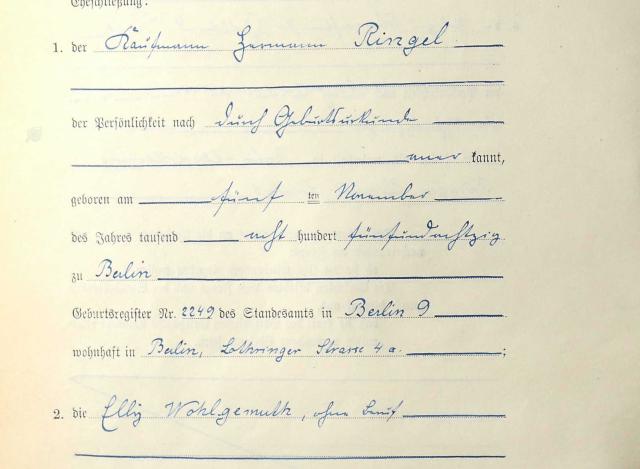 Eheschließung:
1. der Kaufmann Hermann Ringel
der Persönlichkeit nach durch Geburtsurkunde
aner kannt,
geboren am fünf ten November
des Jahres tausend acht hundert fünfundachtzig
zu Berlin
Geburtsregister Nr. 2249 des Standesamts in Berlin 9
wohnhaft in Berlin, Lothringer Strasse 4a.;
2. die Elly Wohlgemuth, ohne Beruf